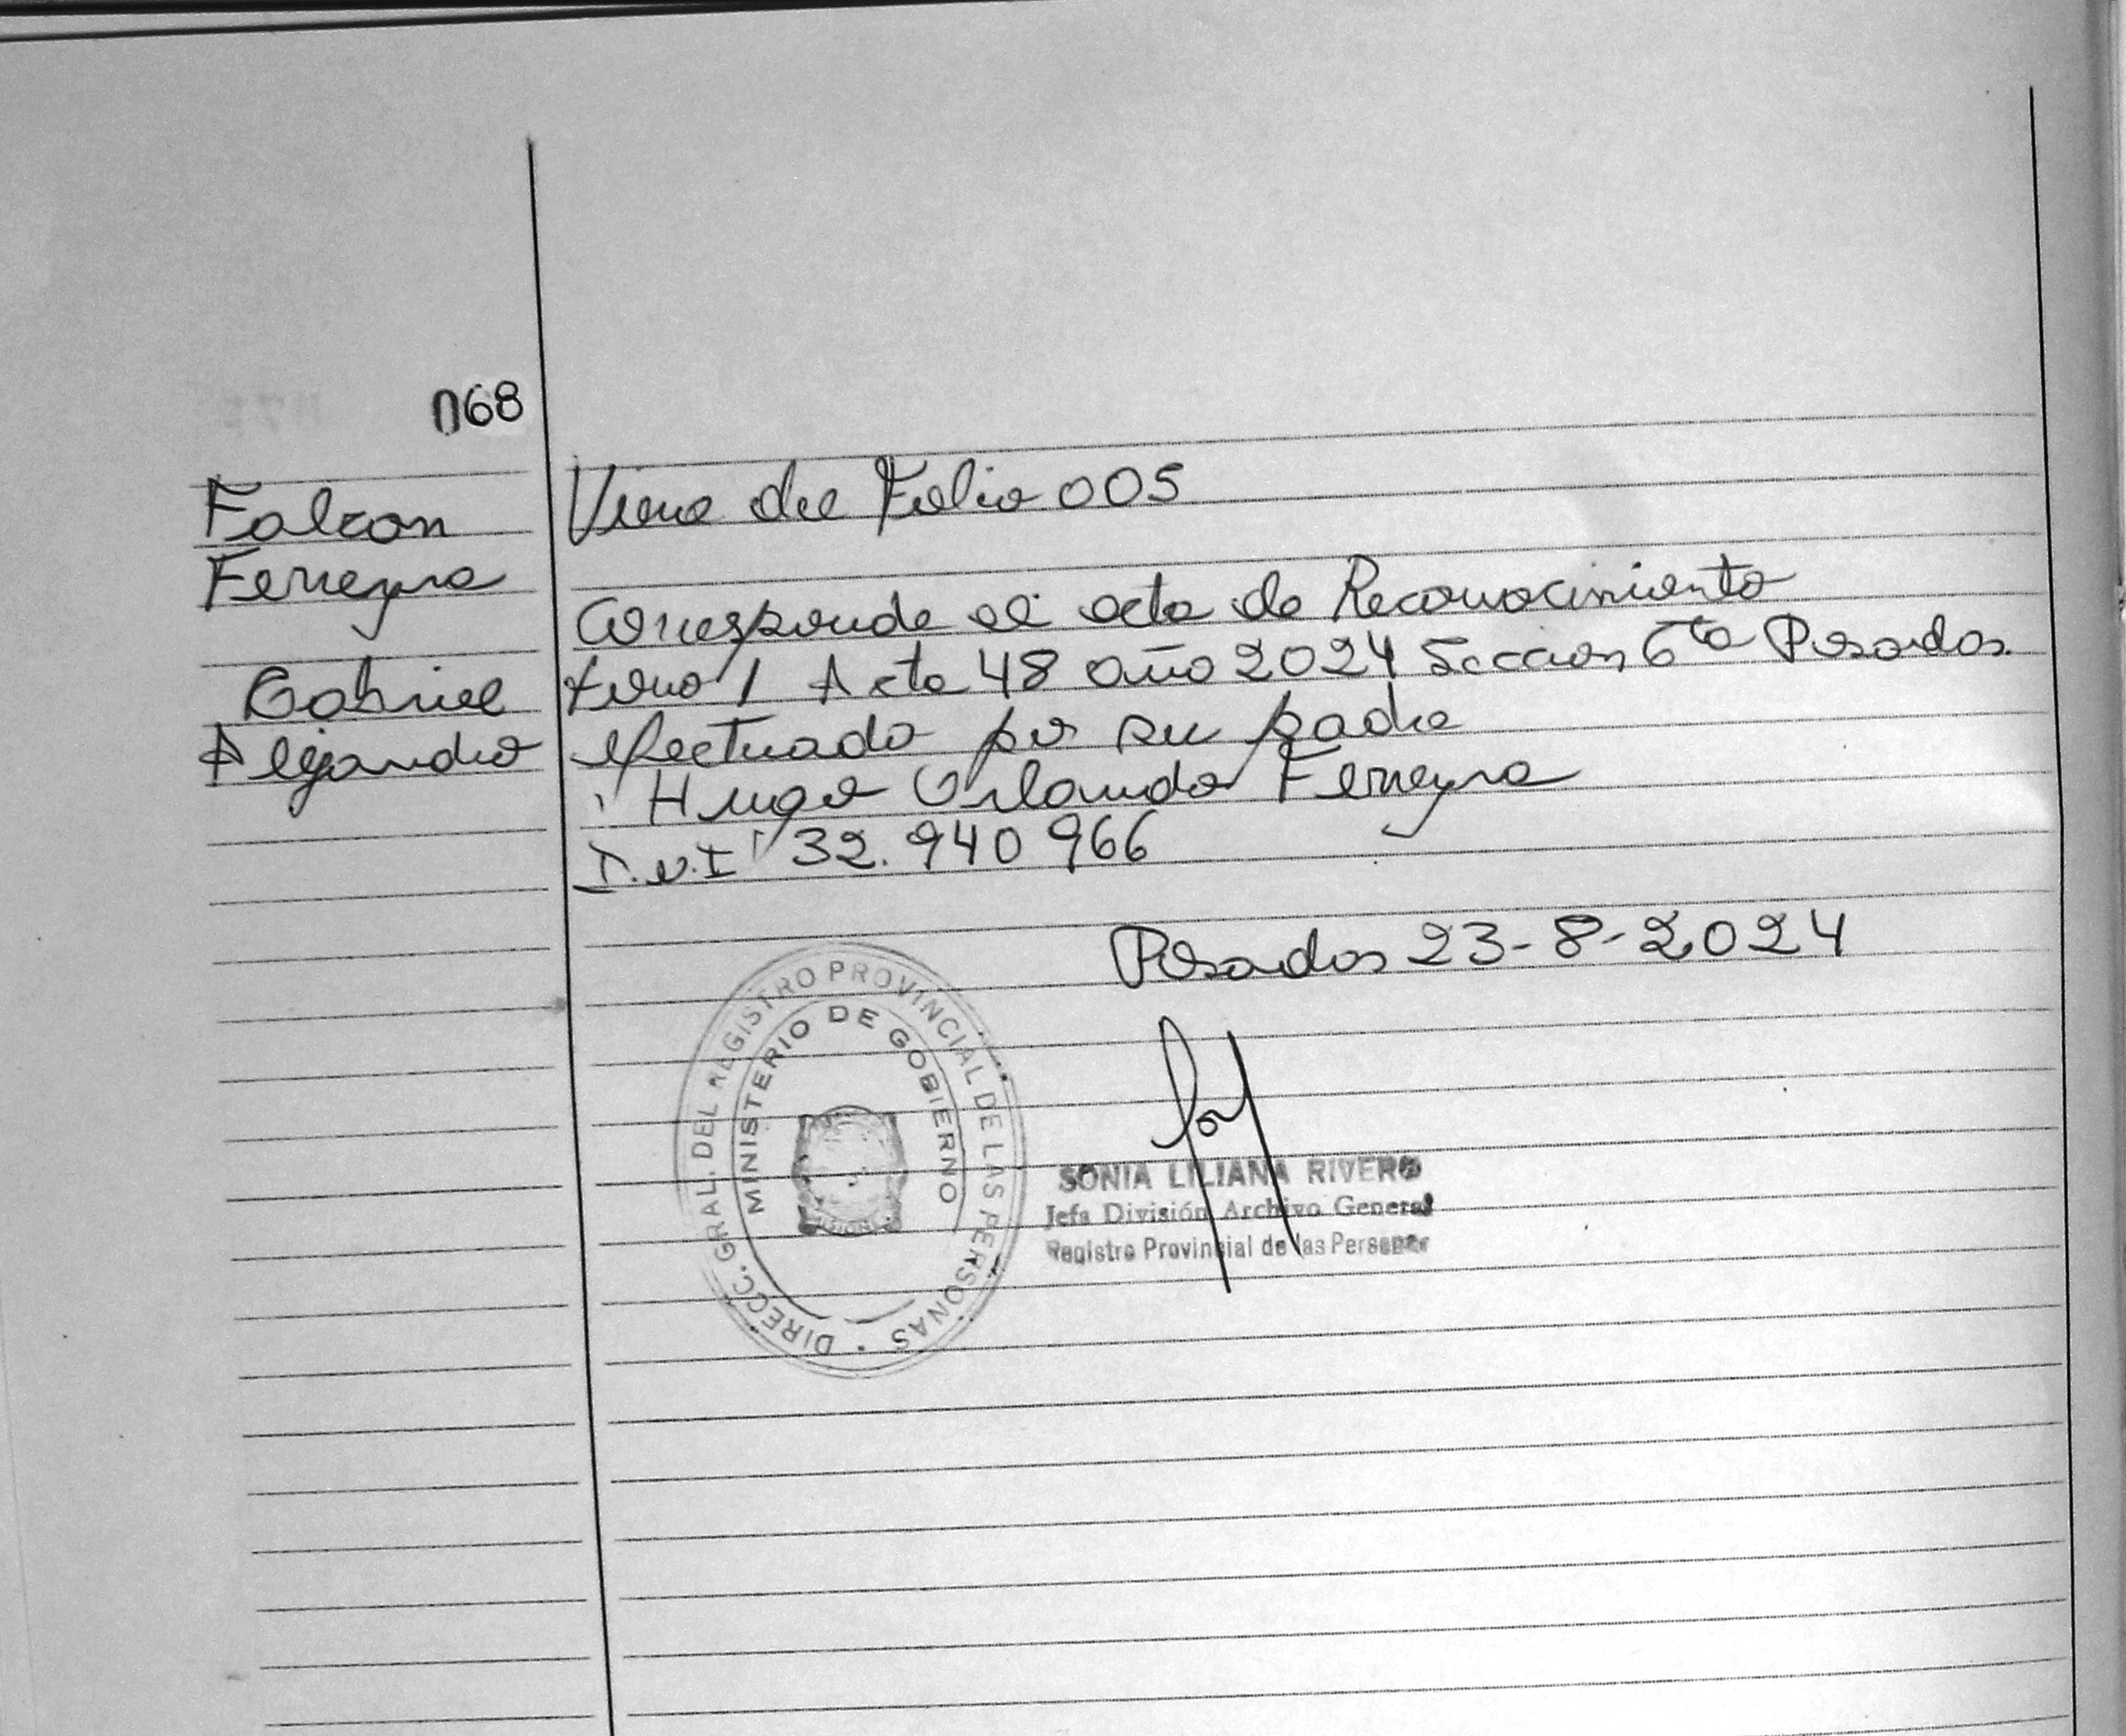 068
Falcon
Ferreyra
Gabriel
Alejandro
Viene del Folio 005
Corresponde al acta de Reconocimiento
tomo 1 Acta 48 año 2024 Seccion 6ta Posadas.
efectuado por su padre
"Hugo Orlando Ferreyra"
D.N.I 32.940 966
Posadas 23-8-2024
DIRECC. GRAL. DEL REGISTRO PROVINCIAL DE LAS PERSONAS
MINISTERIO DE GOBIERNO
MISIONES
SONIA LILIANA RIVERO
Jefa División Archivo General
Registro Provincial de las Personas